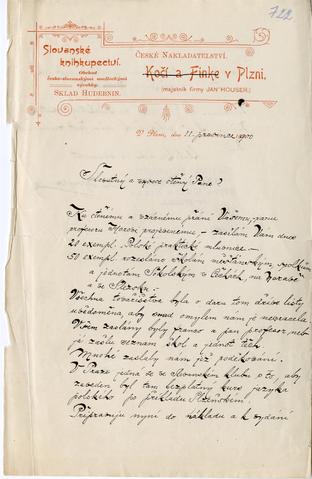 722
Slovanské
knihkupectví.
Obchod
česko-slovanskými uměleckými
výrobky.
SKLAD HUDEBNIN.
ČESKÉ NAKLADATELSTVÍ.
Kočí a Finke v Plzni.
(majetník firmy JAN HOUSER.)
V Plzni, dne 11. prosince 1900
Slovutný a vysoce ctěný Pane!
Ku ctěnému a vzácnému přání Vašemu, panu
professoru projevenému – zasílám Vám dnes
20 exempl. Polské praktické mluvnice –
50 exempl. rozesláno školám měšťanským, spolkům
a jednotám Sokolským v Čechách, na Moravě
a ve Slezsku.
Všechna tovaryšstva byla o daru tom dříve listy
uvědoměna, aby snad omylem nám je nevracela.
Všem zaslány byly franco a pan professor, neb
já zašlu seznam škol a jednot těch.
Mnohé zaslaly nám již poděkování.
V Praze jedná se ve Slovanském klubu o to, aby
zaveden byl tam bezplatný kurs jazyka
polského po příkladu Plzeňském.
Připravuju nyní do nákladu a k vydání